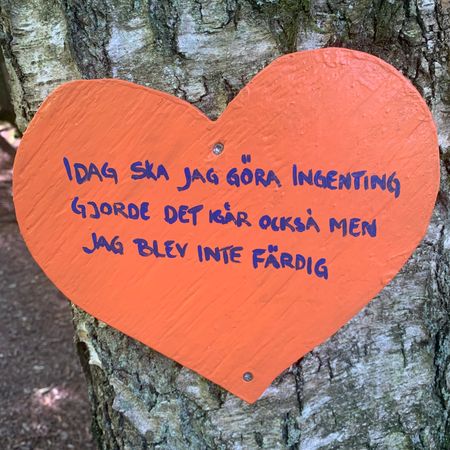 IDAG SKA JAG GÖRA INGENTING
GJORDE DET IGÅR OCKSÅ MEN
JAG BLEV INTE FÄRDIG